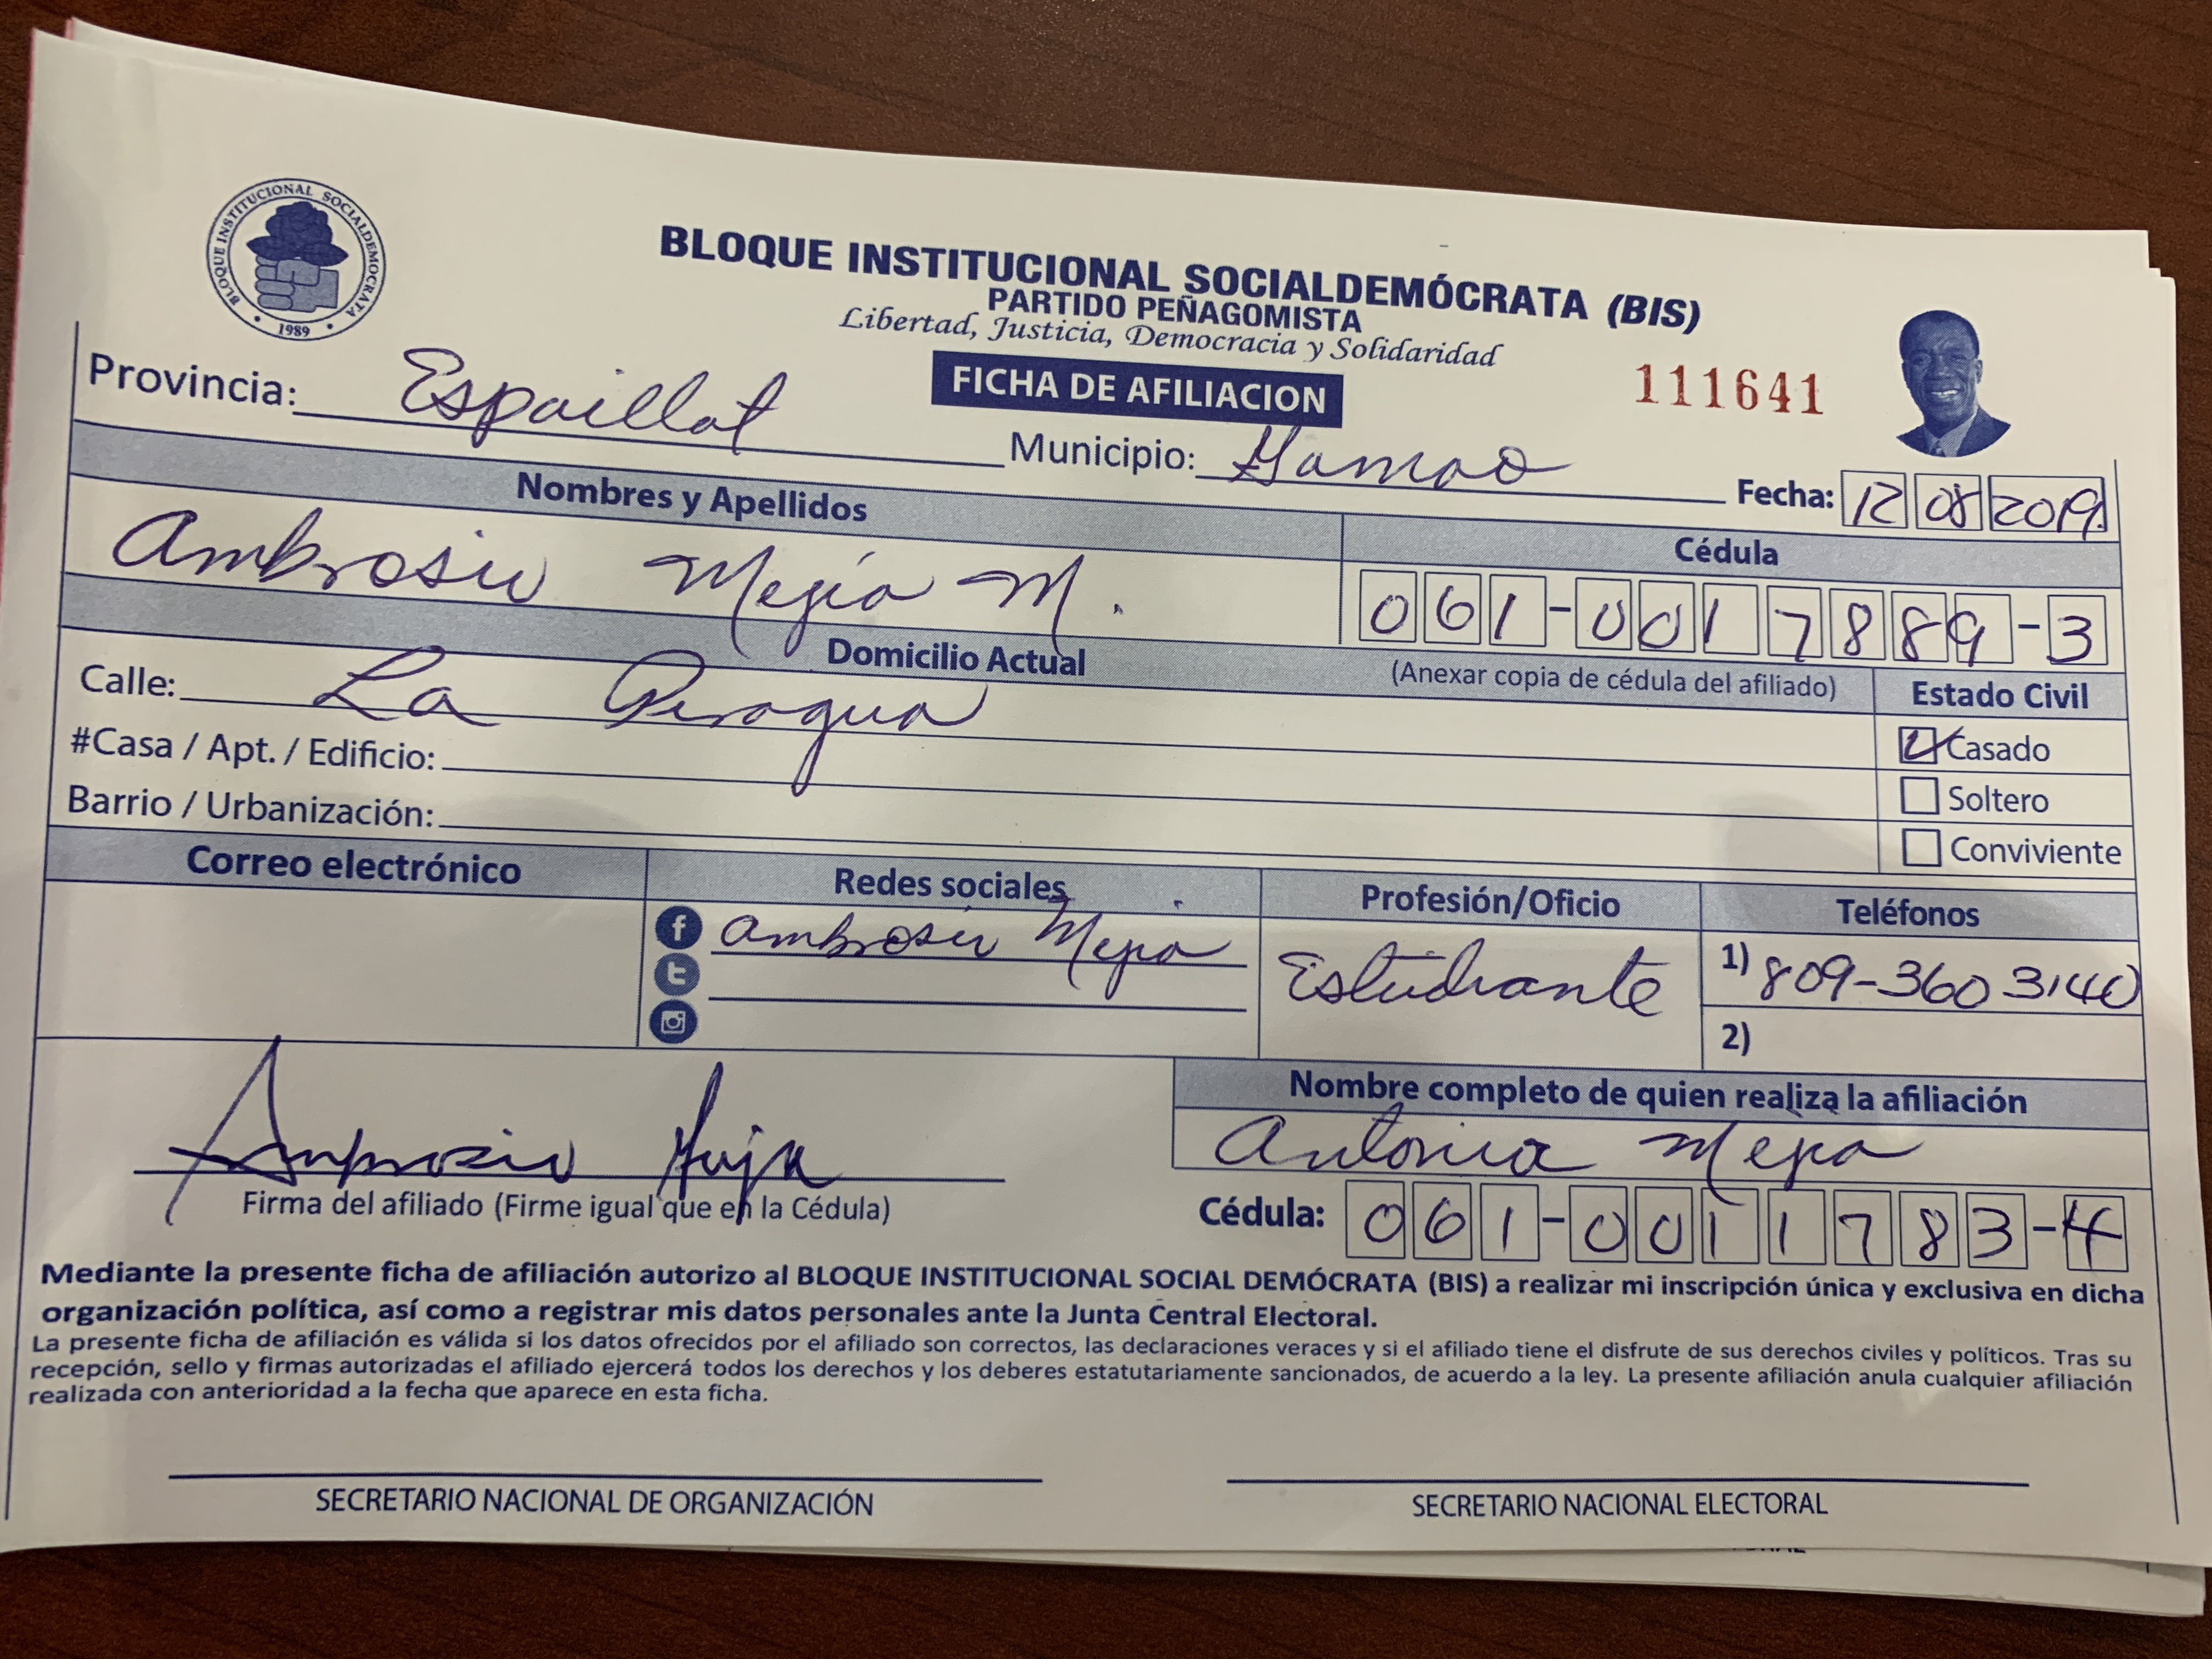 BLOQUE INSTITUCIONAL SOCIALDEMOCRATA
1989
BLOQUE INSTITUCIONAL SOCIALDEMÓCRATA (BIS)
PARTIDO PEÑAGOMISTA
Libertad, Justicia, Democracia y Solidaridad
FICHA DE AFILIACION
111641
Provincia: Espaillat
Municipio:
Fecha: 12 08 2019
Nombres y Apellidos
Cédula
Ambrosio Mejía M.
061-0017889-3
Domicilio Actual
(Anexar copia de cédula del afiliado)
Estado Civil
Calle: La
Casado
#Casa / Apt. / Edificio:
Soltero
Barrio / Urbanización:
Conviviente
Correo electrónico
Redes sociales
Profesión/Oficio
Teléfonos
Ambrosio Mejia
Estudiante
1) 809-360 3140
2)
Nombre completo de quien realiza la afiliación
Ambrosio Mejia
Antonia Mejia
Firma del afiliado (Firme igual que en la Cédula)
Cédula: 061-0011783-4
Mediante la presente ficha de afiliación autorizo al BLOQUE INSTITUCIONAL SOCIAL DEMÓCRATA (BIS) a realizar mi inscripción única y exclusiva en dicha
organización política, así como a registrar mis datos personales ante la Junta Central Electoral.
La presente ficha de afiliación es válida si los datos ofrecidos por el afiliado son correctos, las declaraciones veraces y si el afiliado tiene el disfrute de sus derechos civiles y políticos. Tras su
recepción, sello y firmas autorizadas el afiliado ejercerá todos los derechos y los deberes estatutariamente sancionados, de acuerdo a la ley. La presente afiliación anula cualquier afiliación
realizada con anterioridad a la fecha que aparece en esta ficha.
SECRETARIO NACIONAL DE ORGANIZACIÓN
SECRETARIO NACIONAL ELECTORAL